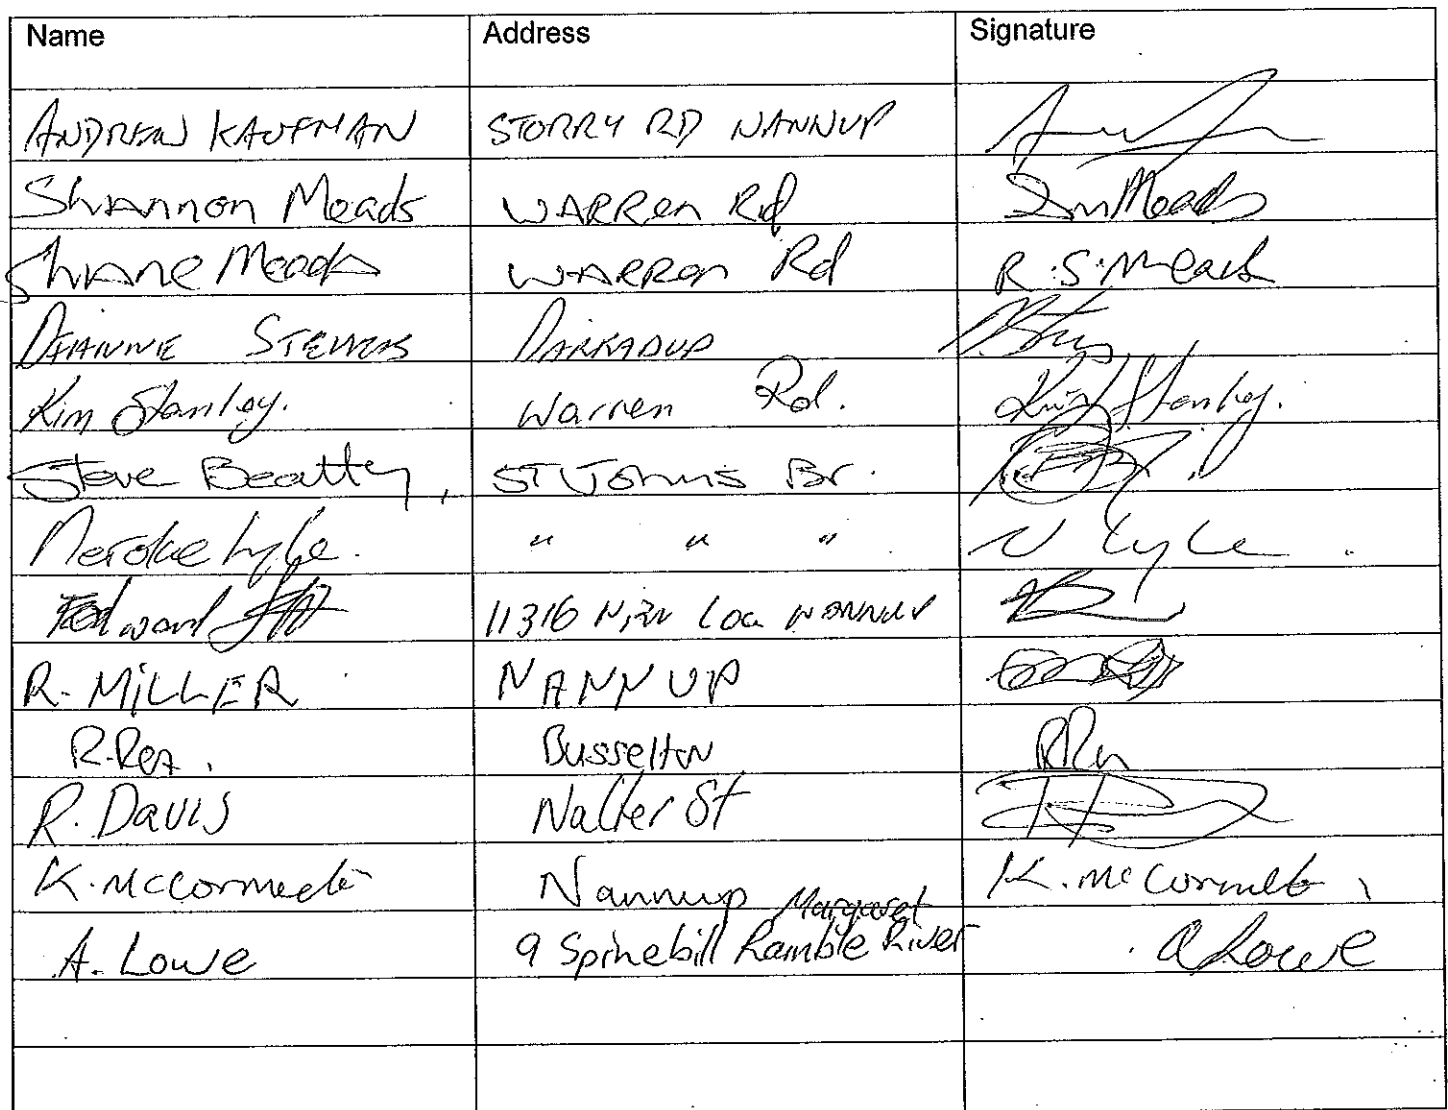 Name Address Signature
ANDREW KAUFMAN STORRY RD NANNUP
Shannon Meads WARRen Rd Meads
Shane Meads WARRen Rd R.S.Meads
DIANNE STEVENS DARRADUP
Kim Stanley. Warren Rd. Kim Stanley.
Steve Beatty, ST Johns Br.
Lyle. " " " N Lyle.
Edward 11316 Loc NANNUP
R. MiLLER NANNUP
R. Rea. Busselton RRea
R. Davis St
K. McCormack Nannup K. McCormack
Margaret
A. Lowe 9 Spinebill Ramble River A Lowe